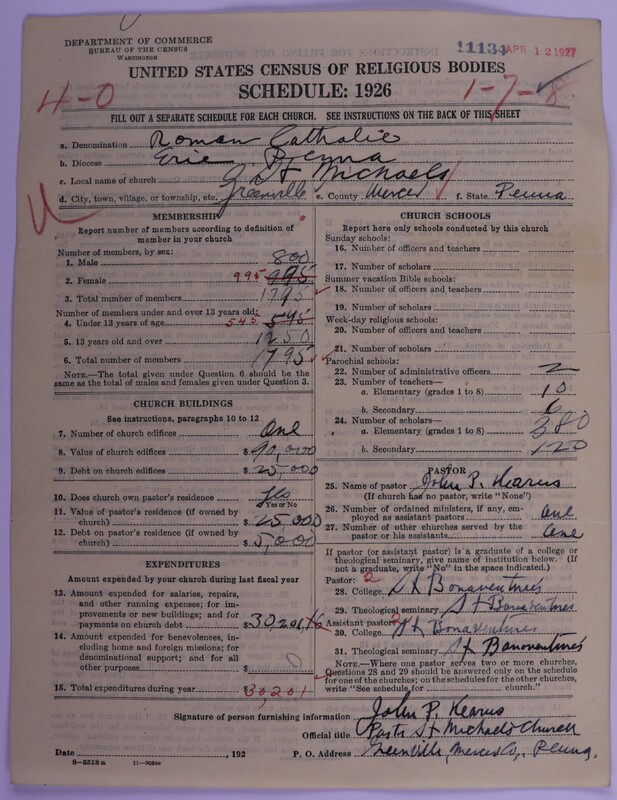 DEPARTMENT OF COMMERCE
BUREAU OF THE CENSUS
WASHINGTON
11134 APR 12 1927
UNITED STATES CENSUS OF RELIGIOUS BODIES
SCHEDULE: 1926
4-0
1-7-8
FILL OUT A SEPARATE SCHEDULE FOR EACH CHURCH. SEE INSTRUCTIONS ON THE BACK OF THIS SHEET
a. Denomination Roman Catholic
b. Diocese Erie Penna
c. Local name of church St Michaels
d. City, town, village, or township, etc. Greenville e. County Mercer f. State Penna
MEMBERSHIP
Report number of members according to definition of member in your church
Number of members, by sex:
1. Male 800
2. Female 995 995
3. Total number of members 1795
Number of members under and over 13 years old:
4. Under 13 years of age 545 545
5. 13 years old and over 1250
6. Total number of members 1795
NOTE.—The total given under Question 6 should be the same as the total of males and females given under Question 3.
CHURCH BUILDINGS
See instructions, paragraphs 10 to 12
7. Number of church edifices One
8. Value of church edifices $ 90,000
9. Debt on church edifices $ 25,000
10. Does church own pastor's residence Yes
Yes or No
11. Value of pastor's residence (if owned by church) $ 25,000
12. Debt on pastor's residence (if owned by church) $ 5,000
EXPENDITURES
Amount expended by your church during last fiscal year
13. Amount expended for salaries, repairs, and other running expenses; for improvements or new buildings; and for payments on church debt $ 30,201,16
14. Amount expended for benevolences, including home and foreign missions; for denominational support; and for all other purposes $ 0
15. Total expenditures during year $ 30,201
CHURCH SCHOOLS
Report here only schools conducted by this church
Sunday schools:
16. Number of officers and teachers
17. Number of scholars
Summer vacation Bible schools:
18. Number of officers and teachers
19. Number of scholars
Week-day religious schools:
20. Number of officers and teachers
21. Number of scholars
Parochial schools:
22. Number of administrative officers 2
23. Number of teachers—
a. Elementary (grades 1 to 8) 10
b. Secondary 6
24. Number of scholars—
a. Elementary (grades 1 to 8) 380
b. Secondary 120
PASTOR
25. Name of pastor John P. Kearns
(If church has no pastor, write "None")
26. Number of ordained ministers, if any, employed as assistant pastors One
27. Number of other churches served by the pastor or his assistants One
If pastor (or assistant pastor) is a graduate of a college or theological seminary, give name of institution below. (If not a graduate, write "No" in the space indicated.)
Pastor: 2
28. College St Bonaventure's
29. Theological seminary St Bonaventures
Assistant pastor:
30. College St Bonaventures
31. Theological seminary St Banoventures
NOTE.—Where one pastor serves two or more churches, Questions 28 and 29 should be answered only on the schedule for one of the churches; on the schedules for the other churches, write "See schedule for church."
Signature of person furnishing information John P. Kearns
Official title Pastor St Michaels Church
Date , 192 P. O. Address Greenville, Mercer Co., Penna.
8—5518a 11—9024a